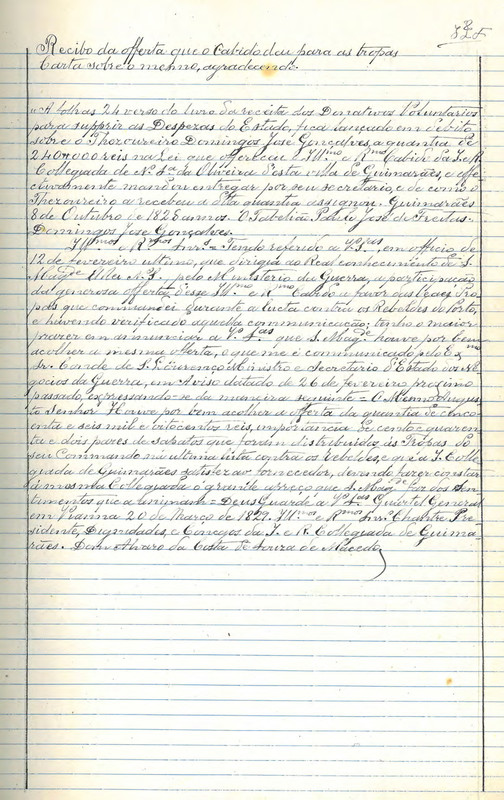 Recibo da offerta que o Cabido deu para as tropas
Carta sobre o mesmo, agradecendo.
A folhas 24 verso do livro da receita dos Donativos Voluntarios
para supprir as Despezas do Estado, fica lançado em debito
sobre o Thezoureiro Domingos José Gonçalves a quantia de
240$000 reis na Lei que offereceu o Illmo e Rmo Cabido da I. e R.
Collegiada de Nª Srª da Oliveira d'esta villa de Guimarães, e effe-
ctivamente mandou entregar por seu secretario, e de como o
Thezoureiro a recebeu a dita quantia assignou. Guimarães
8 de Outubro de 1828 annos. O Tabelião José de Freitas.
Domingos José Gonçalves.
Illmos e Rmos Snrs = Tendo referido a Vªs Sªs, em officio de
12 de fevereiro ultimo, que dirigia ao Real conhecimento de S.
Magde El Rei N. S., pelo Ministerio da Guerra, a participação
da generosa offerta d'esse Illmo e Rmo Cabido a favor das Tro-
pas que commandei durante a lucta contra os Rebeldes do Porto,
e havendo verificado aquella communicação; tenho o maior
prazer em annunciar a Vªs Sªs que S. Magde houve por bem
acolher a mesma offerta, o que me é communicado pelo Exmo
Sr. Conde de S. Lourenço Ministro e Secretario d'Estado dos Ne-
gocios da Guerra, em Aviso datado de 26 de fevereiro proximo
passado, expressando-se da maneira seguinte = O Mesmo Augus-
to Senhor Houve por bem acolher a offerta da quantia de cinco-
enta e seis mil e oitocentos reis, importancia de cento e quaren-
ta e dois pares de sapatos que foram distribuidos ás Tropas do
seu Commando na ultima lucta contra os rebeldes, e que a I. Colle-
giada de Guimarães satisfez ao fornecedor, devendo fazer constar
á mesma Collegiada o grande apreço que S. Magde faz dos sen-
timentos que a animam = Deus Guarde a Vªs Sªs Quartel General
em Vianna 20 de Março de 1829. Illmos e Rmos Snrs. Chantre Pre-
sidente, Dignidades, e Conegos da I. e R. Collegiada de Guima-
rães. Dom Alvaro da Costa de Souza de Macedo